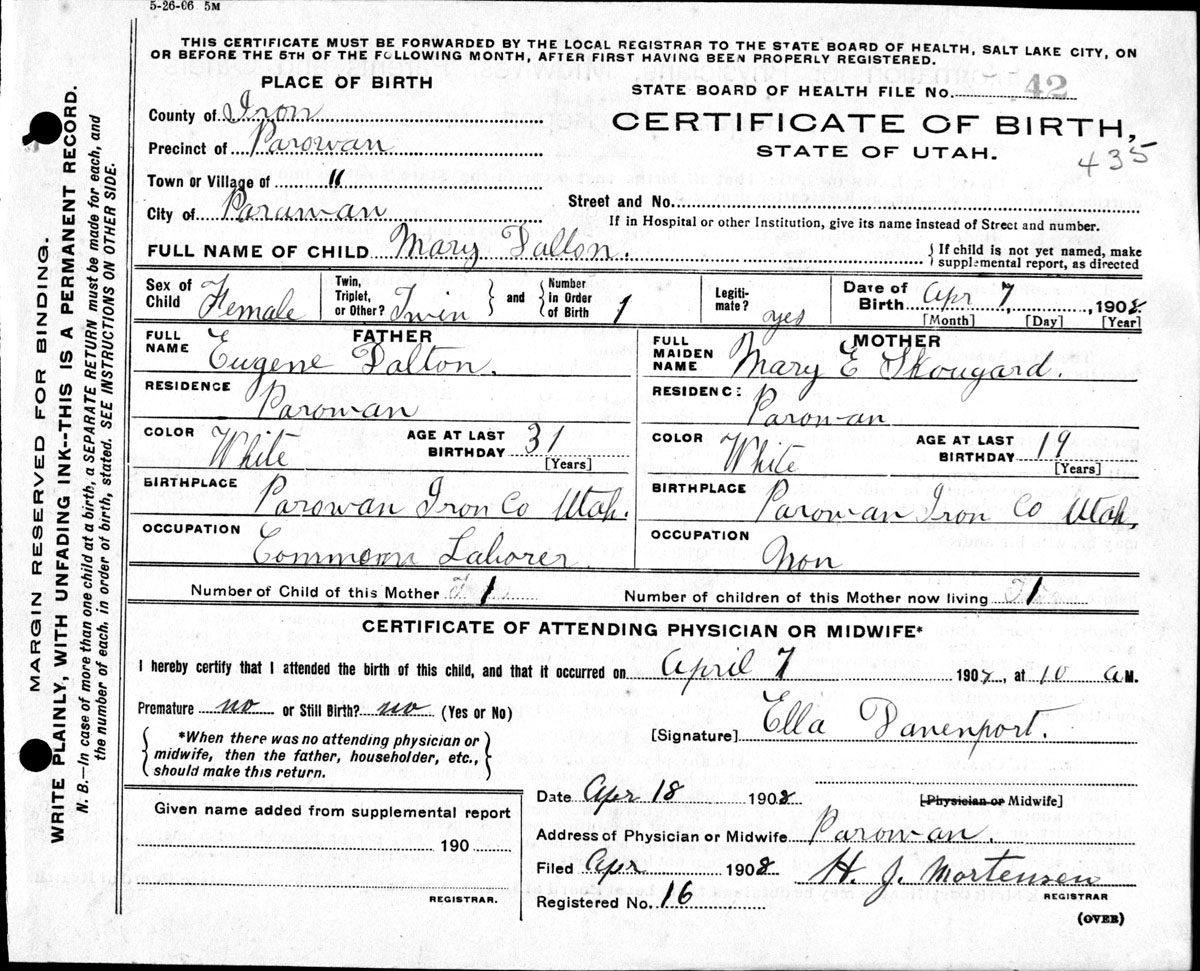 5-26-06 5M
THIS CERTIFICATE MUST BE FORWARDED BY THE LOCAL REGISTRAR TO THE STATE BOARD OF HEALTH, SALT LAKE CITY, ON
OR BEFORE THE 5TH OF THE FOLLOWING MONTH, AFTER FIRST HAVING BEEN PROPERLY REGISTERED.
PLACE OF BIRTH
STATE BOARD OF HEALTH FILE No. 42
County of Iron
CERTIFICATE OF BIRTH,
STATE OF UTAH.
435
Precinct of Parowan
Town or Village of "
City of Parawan
Street and No.
If in Hospital or other Institution, give its name instead of Street and number.
FULL NAME OF CHILD Mary Dalton.
{ If child is not yet named, make
supplemental report, as directed
Sex of Child Female
Twin, Triplet, or Other? Twin } and { Number in Order of Birth 1
Legiti-mate? yes
Date of Birth Apr 7, 1908
[Month] [Day] [Year]
FATHER
FULL NAME Eugene Dalton.
RESIDENCE Parowan
COLOR White AGE AT LAST BIRTHDAY 31 [Years]
BIRTHPLACE Parowan Iron Co Utah.
OCCUPATION Common Laborer
MOTHER
FULL MAIDEN NAME Mary E Skougard.
RESIDENC: Parowan
COLOR White AGE AT LAST BIRTHDAY 19 [Years]
BIRTHPLACE Parowan Iron Co Utah,
OCCUPATION Non
Number of Child of this Mother 1
Number of children of this Mother now living 1
CERTIFICATE OF ATTENDING PHYSICIAN OR MIDWIFE*
I hereby certify that I attended the birth of this child, and that it occurred on April 7 1908, at 10 a M.
Premature no or Still Birth? no (Yes or No)
[Signature] Ella Davenport.
{ *When there was no attending physician or
midwife, then the father, householder, etc.,
should make this return. }
Date Apr 18 1908
[Physician or Midwife]
Given name added from supplemental report
190
REGISTRAR.
Address of Physician or Midwife Parowan.
Filed Apr 1908 H. J. Mortensen
REGISTRAR
Registered No. 16
(OVER)
MARGIN RESERVED FOR BINDING.
WRITE PLAINLY, WITH UNFADING INK--THIS IS A PERMANENT RECORD.
N. B.—In case of more than one child at a birth, a SEPARATE RETURN must be made for each, and
the number of each, in order of birth, stated. SEE INSTRUCTIONS ON OTHER SIDE.